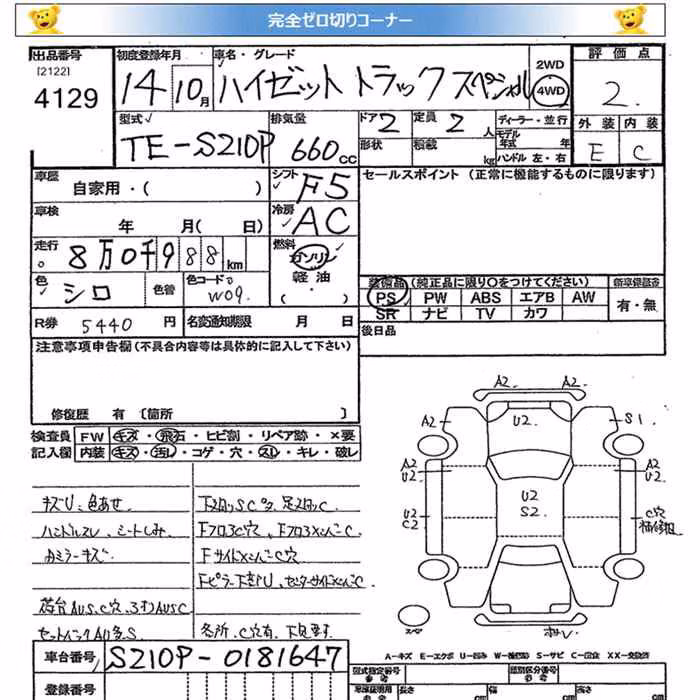 完全ゼロ切りコーナー
出品番号 初度登録年月 車名・グレード 2WD 評価点
[2122] 14 10月 ハイゼット トラック スペシャル 4WD 2.
4129 型式 排気量 ドア 2 定員 2人 ディーラー・並行 外装 内装
TE-S210P 660cc 形状 積載 kg モデル年式 年 ハンドル 左・右 E C
車歴 自家用・( ) シフト F5 セールスポイント (正常に機能するものに限ります)
車検 年 月( 日) 冷房 AC
走行 8万0千988km 燃料 ガソリン
軽油 装備品 (純正品に限り○をつけてください) 新車保証書
色 シロ 色替 色コード W09. ・( ) PS PW ABS エアB AW 有・無
R券 5440円 名変通知期限 月 日 SR ナビ TV カワ
注意事項申告欄(不具合内容等は具体的に記入して下さい) 後日品
修復歴 有 〔箇所 〕
検査員 FW キズ・飛石・ヒビ割・リペア跡・×要
記入欄 内装 キズ・汚レ・コゲ・穴・スレ・キレ・破レ
A2. A2.
A2 U2. S1
A2 U2 A2 U2
U2 C2 U2 S2 C穴 補修粗
キズU、色あせ
ハンドルスレ、シートしみ
カミラーキズ
荷台AUS.C穴、3方AUSC
Fフロ3C穴、Fフロ3メンバーC
FサイドメンバーC穴
Fピラー下部U、センターサイドメンバーC
各所、C穴有、下見要す
スペア
A-キズ E-エクボ U-凹み W-補修跡 S-サビ C-腐食 XX-交換済
車台番号 S210P-0181647
型式指定番号 類別区分番号
登録番号 長さ cm 幅 cm 高さ cm